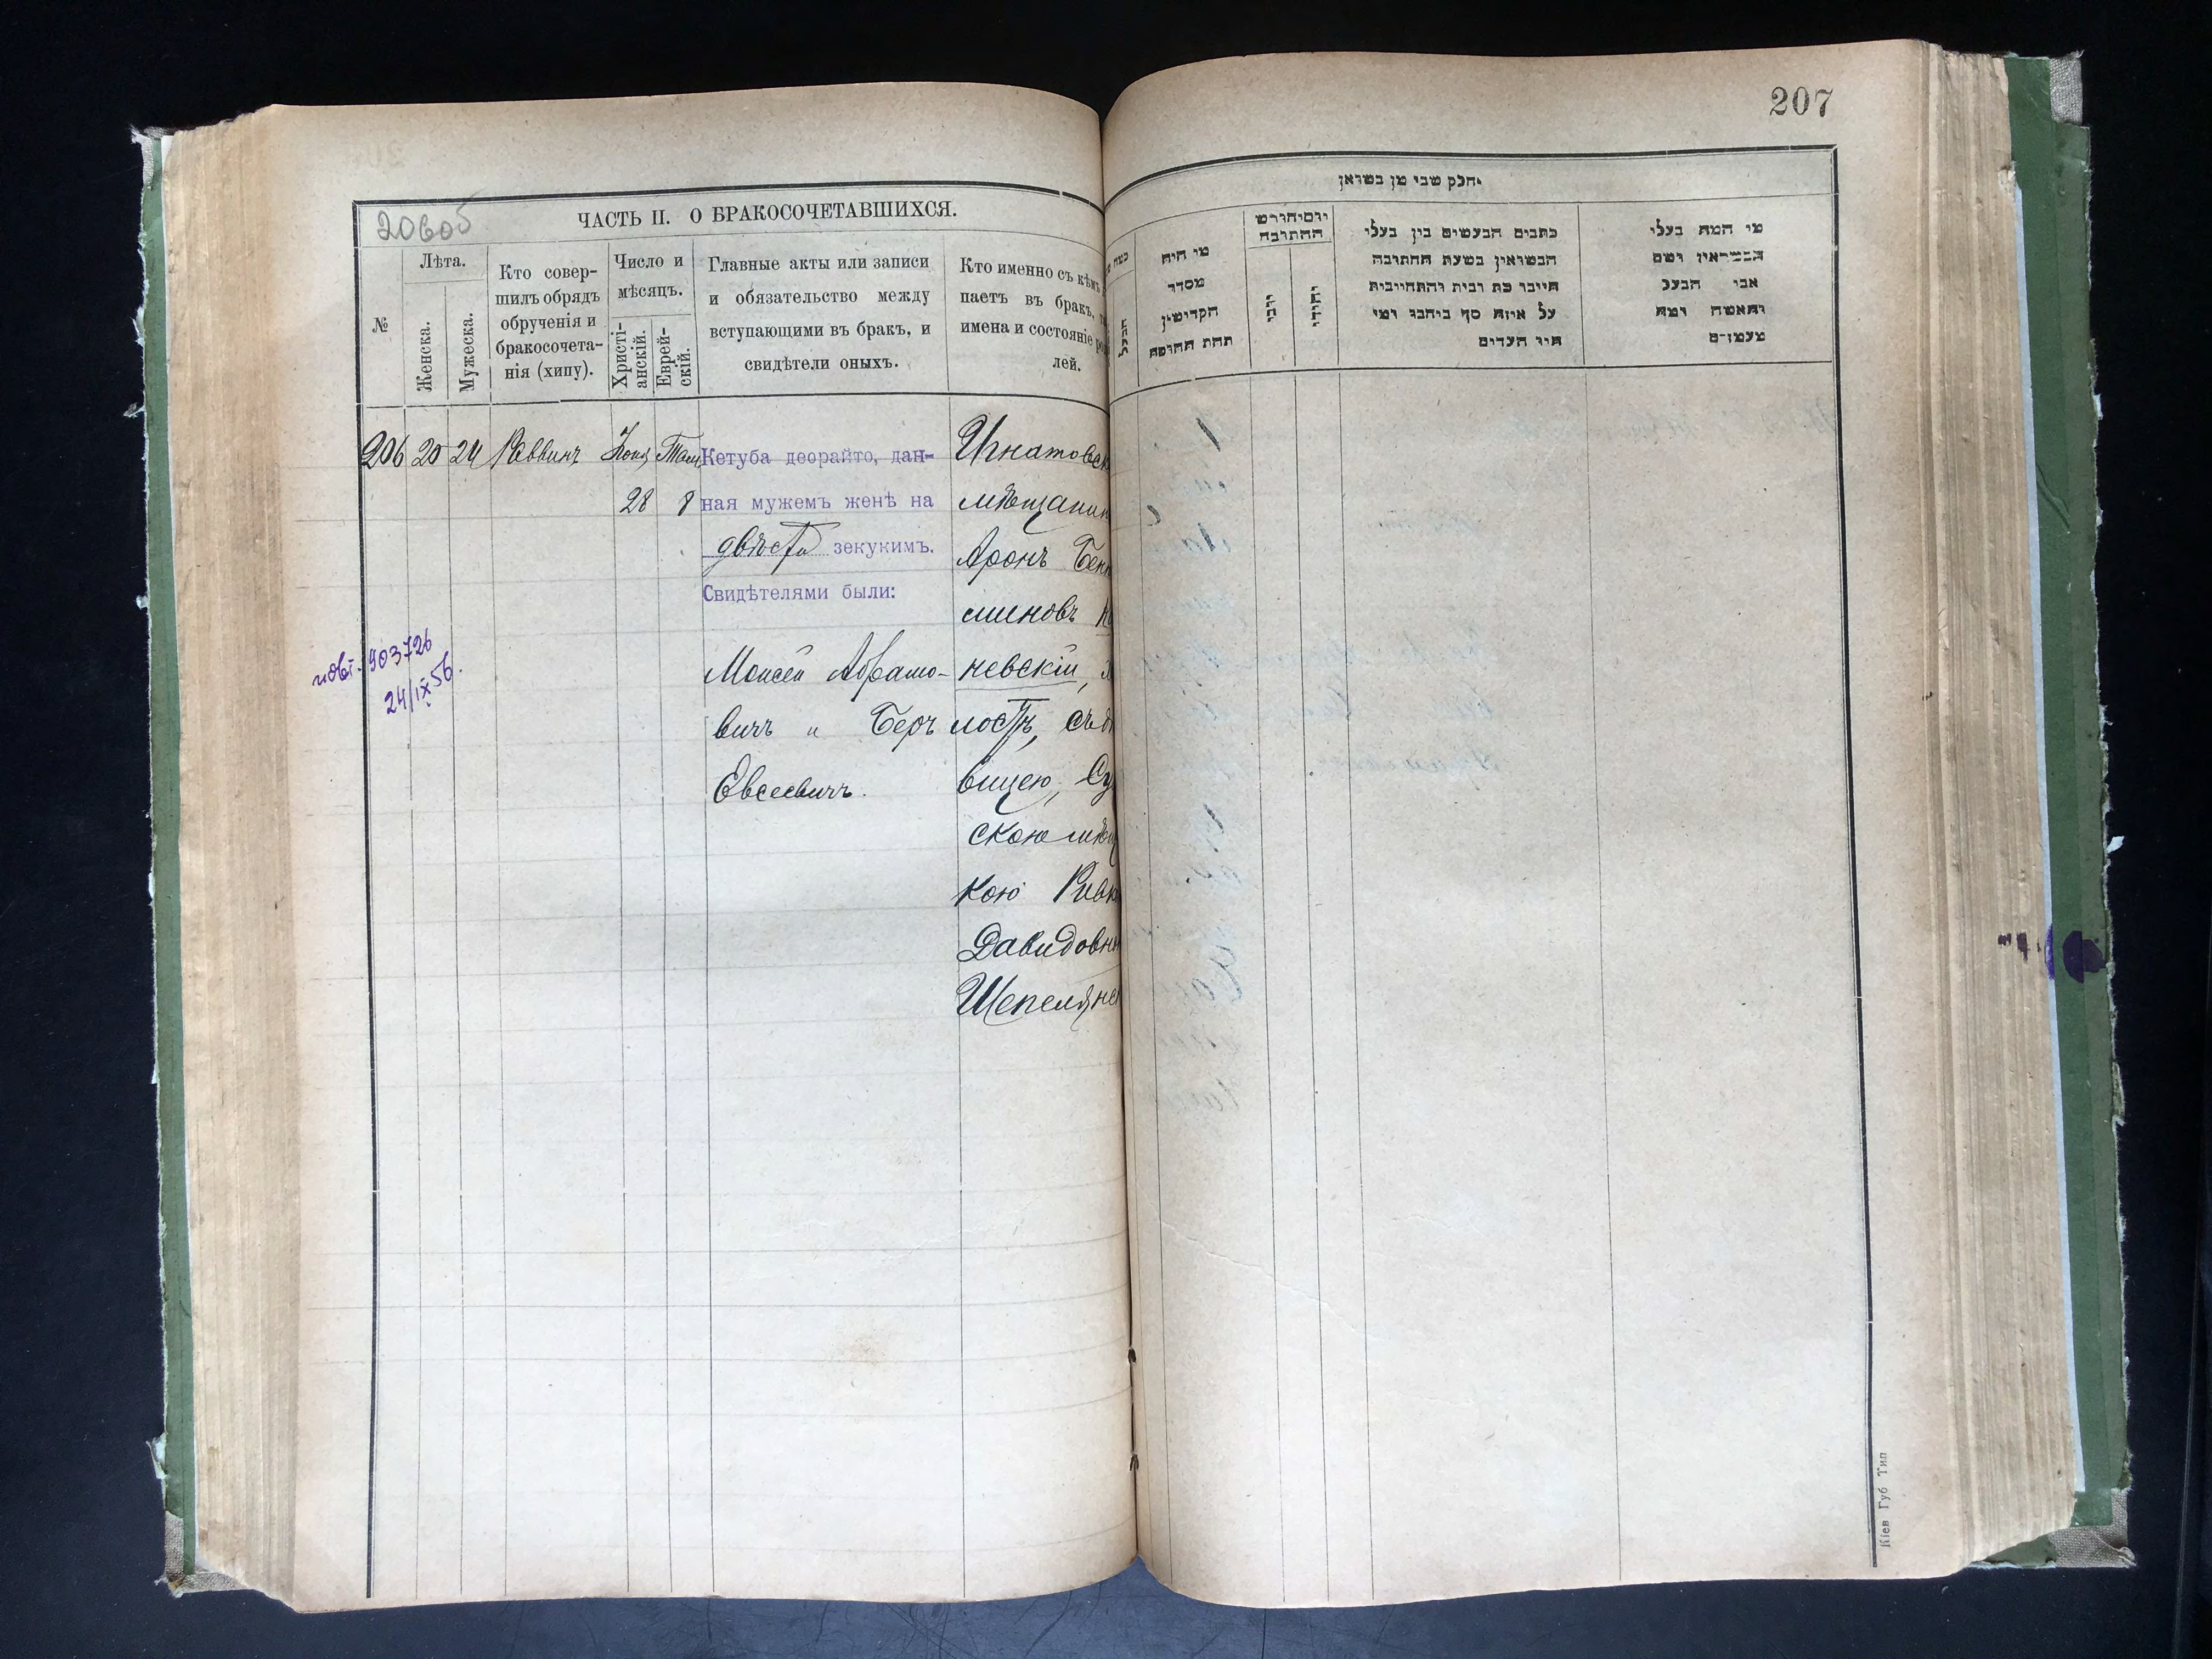 207
206об
ЧАСТЬ II. О БРАКОСОЧЕТАВШИХСЯ.
№
Лѣта.
Женска.
Мужеска.
Кто совер-
шилъ обрядъ
обрученія и
бракосочета-
нія (хипу).
Число и
мѣсяцъ.
Христі-
анскій.
Еврей-
скій.
Главные акты или записи
и обязательство между
вступающими въ бракъ, и
свидѣтели оныхъ.
Кто именно съ кѣмъ
паетъ въ бракъ,
имена и состояніе
лей.
206 20 24 Раввинъ
28 8
Кетуба деорайто, дан-
ная мужемъ женѣ на
двѣсти зекукимъ.
Свидѣтелями были:
Моисей Абрамо-
вичъ и Беръ
Евсеевичъ.
Игнатовск
мѣщанин
Аронъ Бен
миновъ
невскій,
лостъ, съ
вицею,
скою мѣщ
кою Ривк
Давидовн
Шепелянск
903726
24/IX 56.
מי היה
מסדר
הקדושין
תחת החופה
כתבים הנעשים בין בעלי
הנשואין בשעת החתונה
על איזה סך
היו העדים
מי המה בעלי
אבי הבעל
והאשה
Кіев Губ Тип